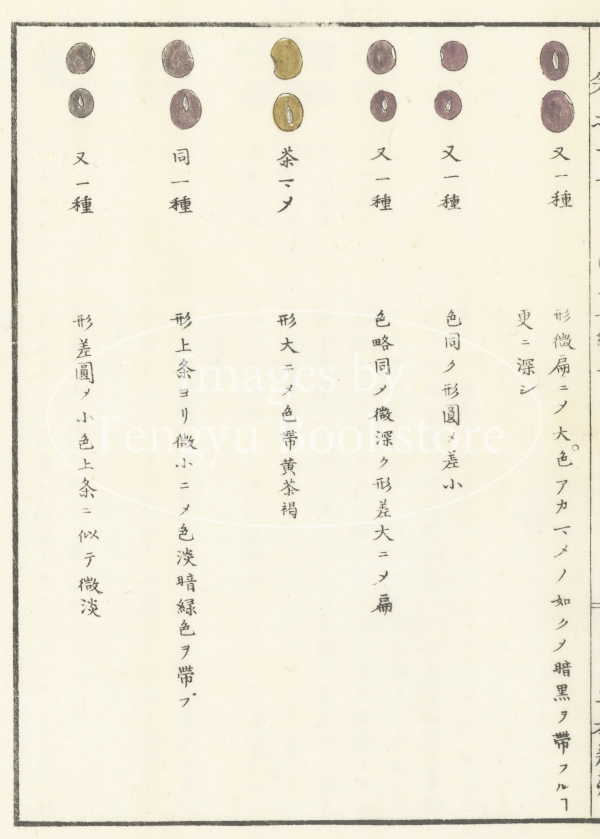 又一種
形微扁ニメ大色アカマメノ如クヲ暗黒ヲ帶フルヿ
更ニ深シ
又一種
色同ク形圓メ差小
又一種
色略同メ微深ク形差大ニメ扁
茶マメ
形大ニメ色帶黄茶褐
同一種
形上条ヨリ微小ニメ色淡暗緑色ヲ帶ブ
又一種
形差圓メ小色上条ニ似テ微淡
Images by
Tengyu Bookstore